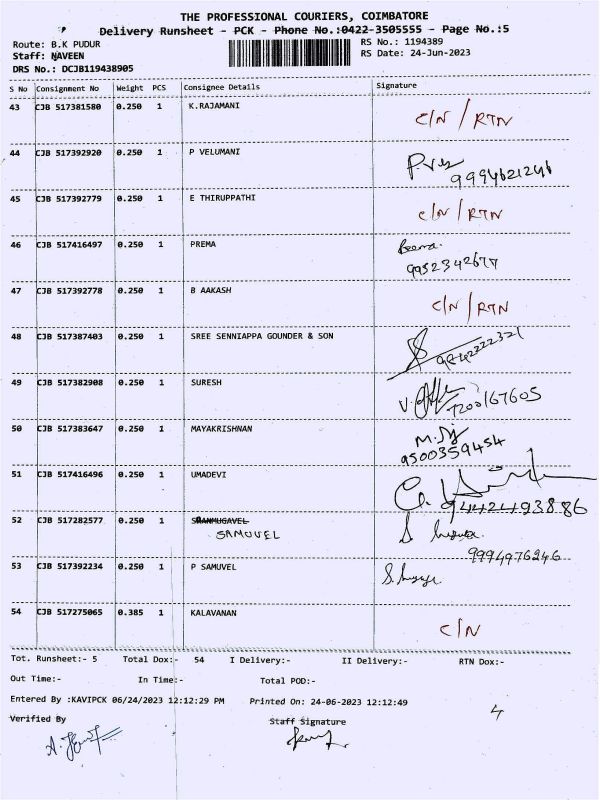 THE PROFESSIONAL COURIERS, COIMBATORE
Delivery Runsheet - PCK - Phone No.:0422-3505555 - Page No.:5
Route: B.K PUDUR RS No.: 1194389
Staff: NAVEEN RS Date: 24-Jun-2023
DRS No.: DCJB119438905
S No Consignment No Weight PCS Consignee Details Signature
43 CJB 517381580 0.250 1 K.RAJAMANI C/N / RTN
44 CJB 517392920 0.250 1 P VELUMANI
9994621246
45 CJB 517392779 0.250 1 E THIRUPPATHI C/N / RTN
46 CJB 517416497 0.250 1 PREMA
9952342677
47 CJB 517392778 0.250 1 B AAKASH C/N / RTN
48 CJB 517387403 0.250 1 SREE SENNIAPPA GOUNDER & SON
49 CJB 517382908 0.250 1 SURESH 7200167605
50 CJB 517383647 0.250 1 MAYAKRISHNAN
9500359454
51 CJB 517416496 0.250 1 UMADEVI
9442493886
52 CJB 517282577 0.250 1 SHANMUGAVEL
SAMUVEL
9994976246
53 CJB 517392234 0.250 1 P SAMUVEL
54 CJB 517275065 0.385 1 KALAVANAN C/N
Tot. Runsheet:- 5 Total Dox:- 54 I Delivery:- II Delivery:- RTN Dox:-
Out Time:- In Time:- Total POD:-
Entered By :KAVIPCK 06/24/2023 12:12:29 PM Printed On: 24-06-2023 12:12:49
Verified By Staff Signature 4